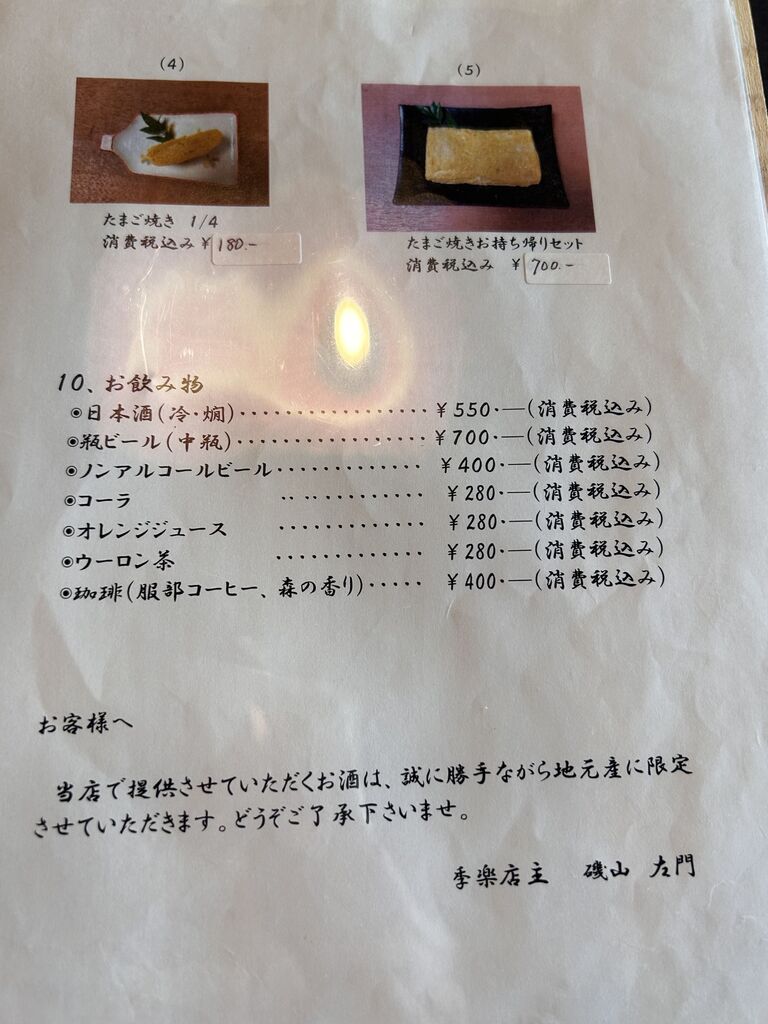 (4)
(5)
たまご焼き 1/4
消費税込み ¥180.-
たまご焼きお持ち帰りセット
消費税込み ¥700.-
10、お飲み物
◉日本酒(冷・燗)・・・・・・・・・・・・・・・・・¥550・―(消費税込み)
◉瓶ビール(中瓶)・・・・・・・・・・・・・・・・・¥700・―(消費税込み)
◉ノンアルコールビール・・・・・・・・・・・・・ ¥400・―(消費税込み)
◉コーラ ・・ ・・・・・・・・・・・ ¥280・―(消費税込み)
◉オレンジジュース ・・・・・・・・・・・・・ ¥280・―(消費税込み)
◉ウーロン茶 ・・・・・・・・・・・・・ ¥280・―(消費税込み)
◉珈琲(服部コーヒー、森の香り)・・・・・ ¥400・―(消費税込み)
お客様へ
当店で提供させていただくお酒は、誠に勝手ながら地元産に限定
させていただきます。どうぞご了承下さいませ。
季楽店主 磯山 左門